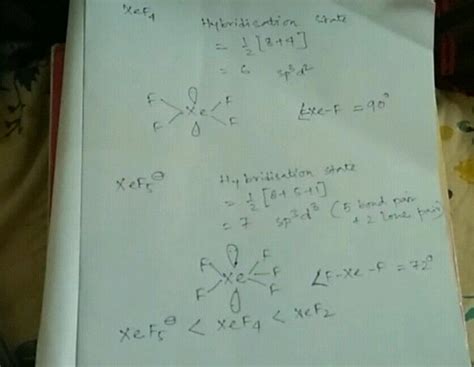 XeF₄
Hybridisation state
= 1/2 [8+4]
= 6 sp³d²
F F
Xe
F F
∠Xe-F = 90°
XeF₅⊖
Hybridisation state
= 1/2 [8+5+1]
= 7 sp³d³ (5 bond pair
+ 2 lone pair)
F F
Xe F
F F
∠F-Xe-F = 72°
XeF₅⊖ < XeF₄ < XeF₂